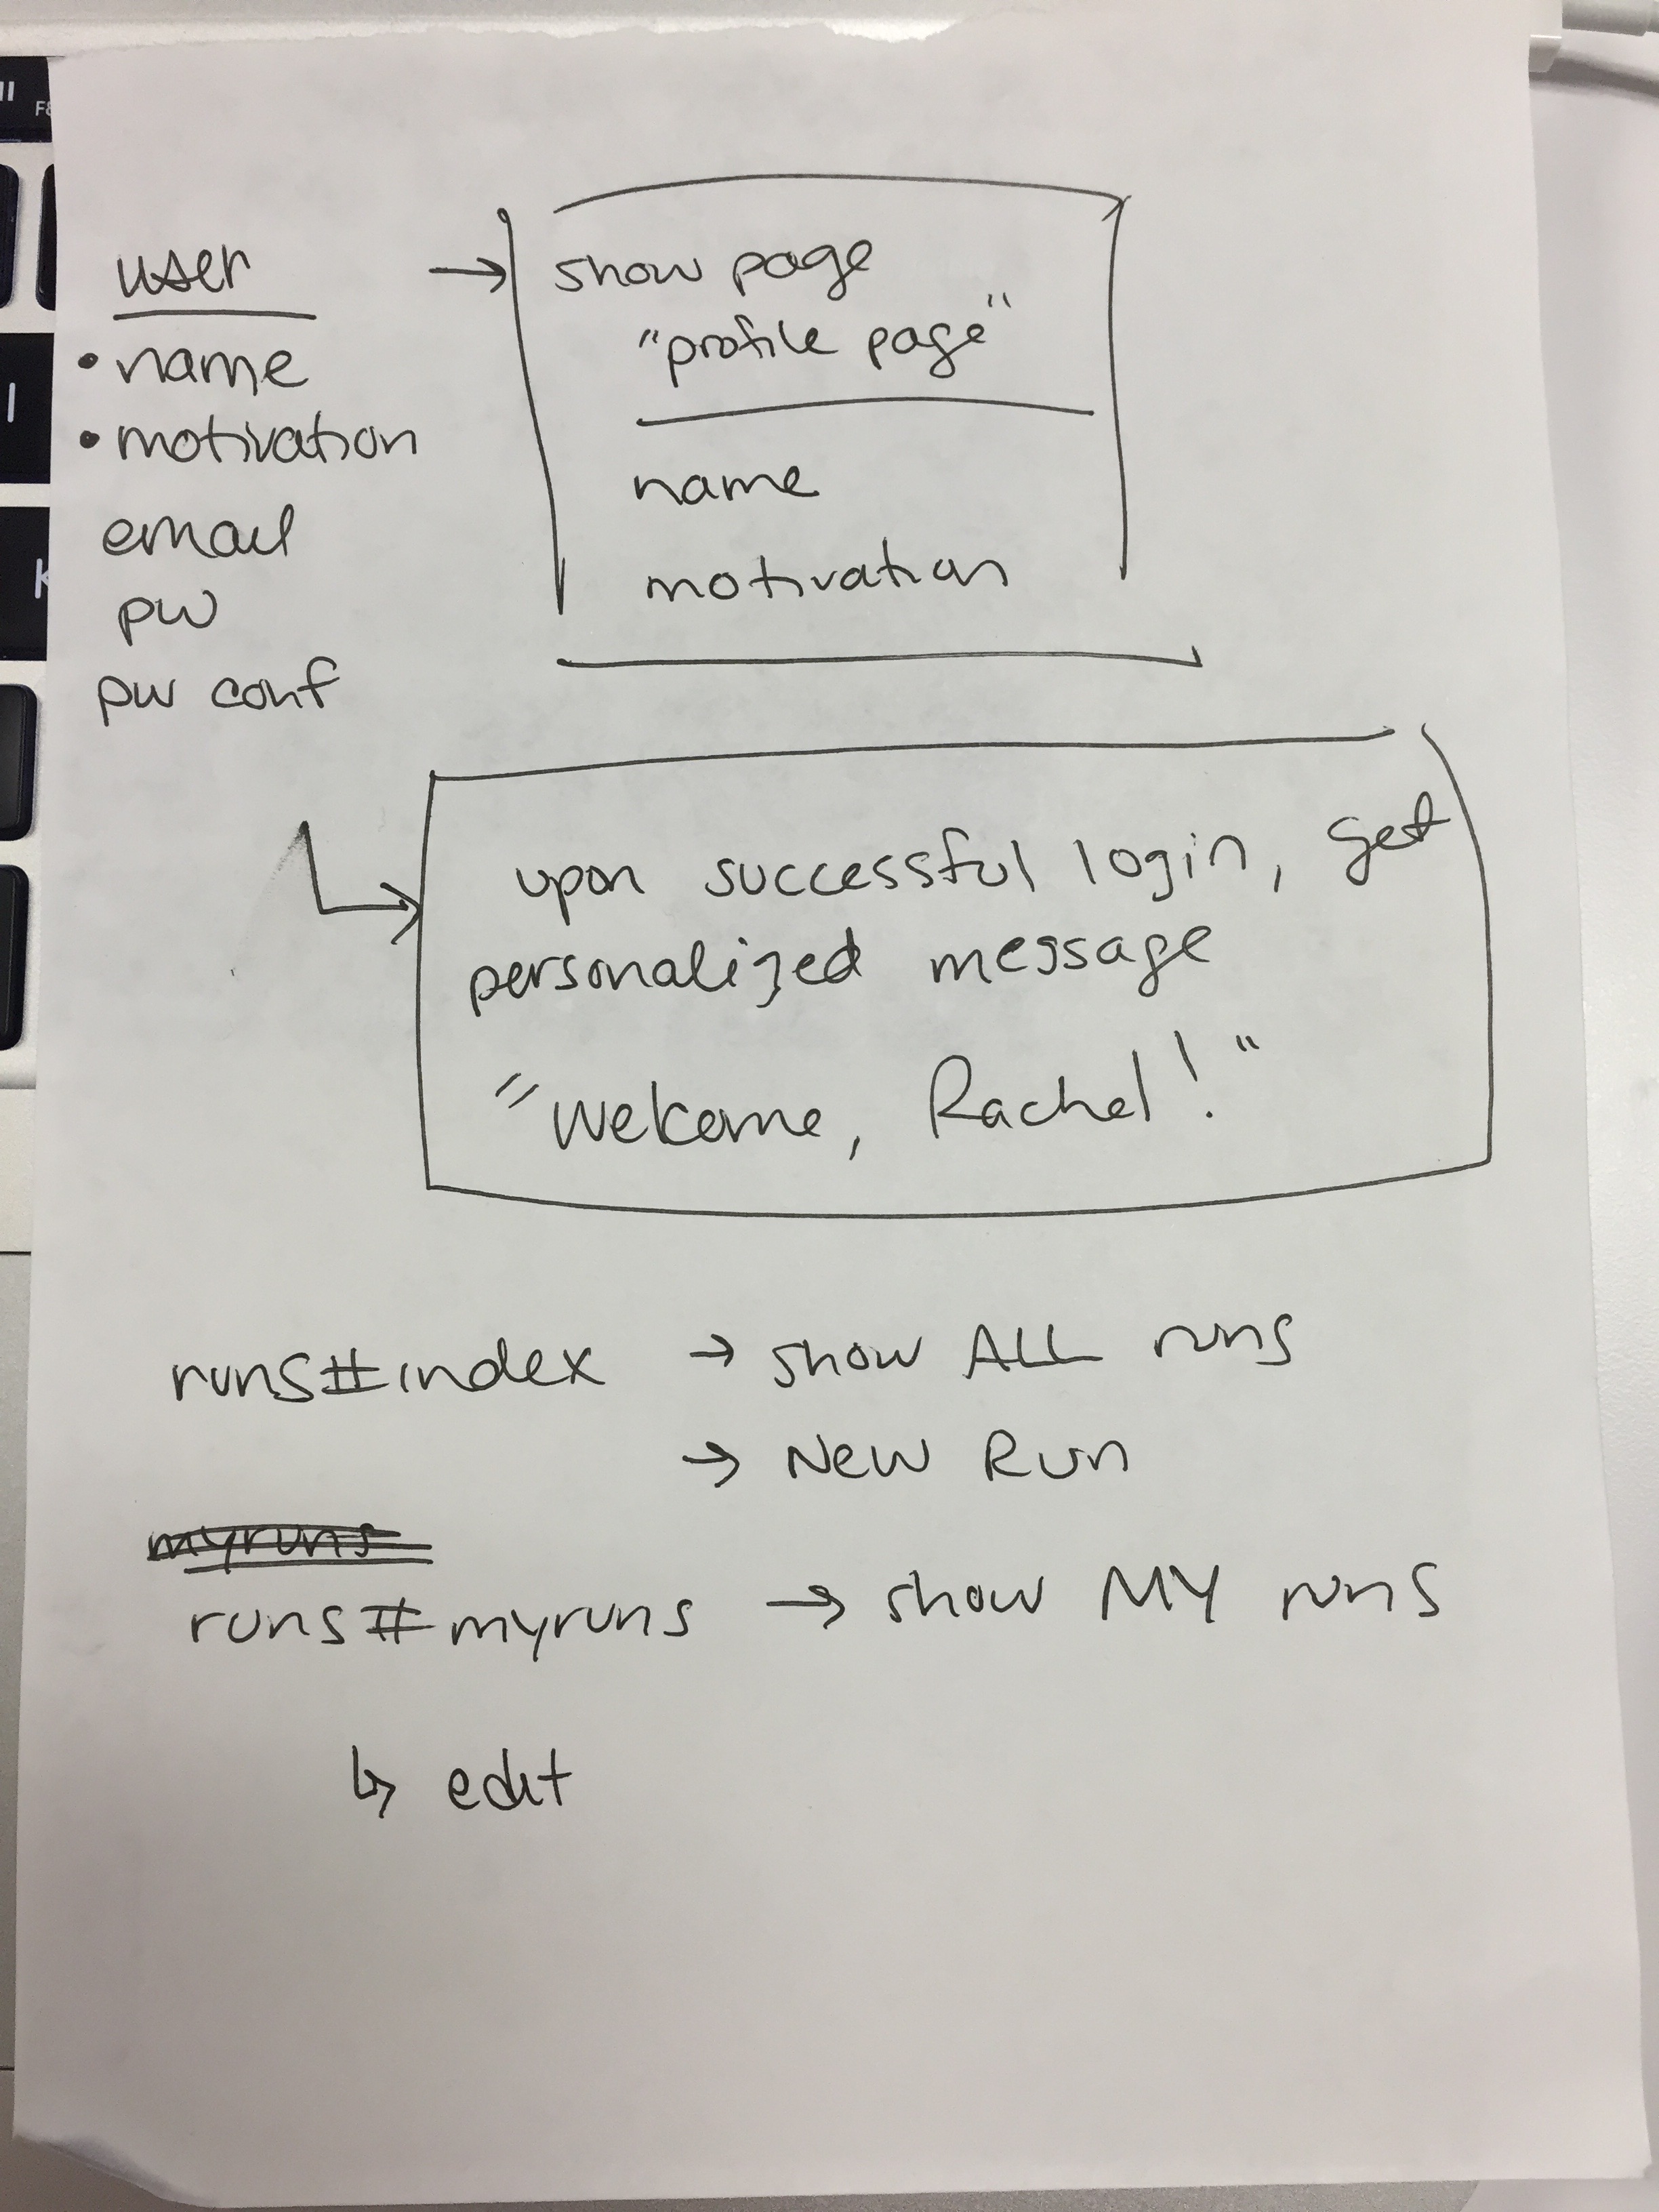 user
• name
• motivation
email
pw
pw conf
→ show page
"profile page"
name
motivation
upon successful login, get
personalized message
"welcome, Rachel!"
runs#index → show ALL runs
→ New Run
myruns
runs#myruns → show MY runs
↳ edit
II
F8
I
K